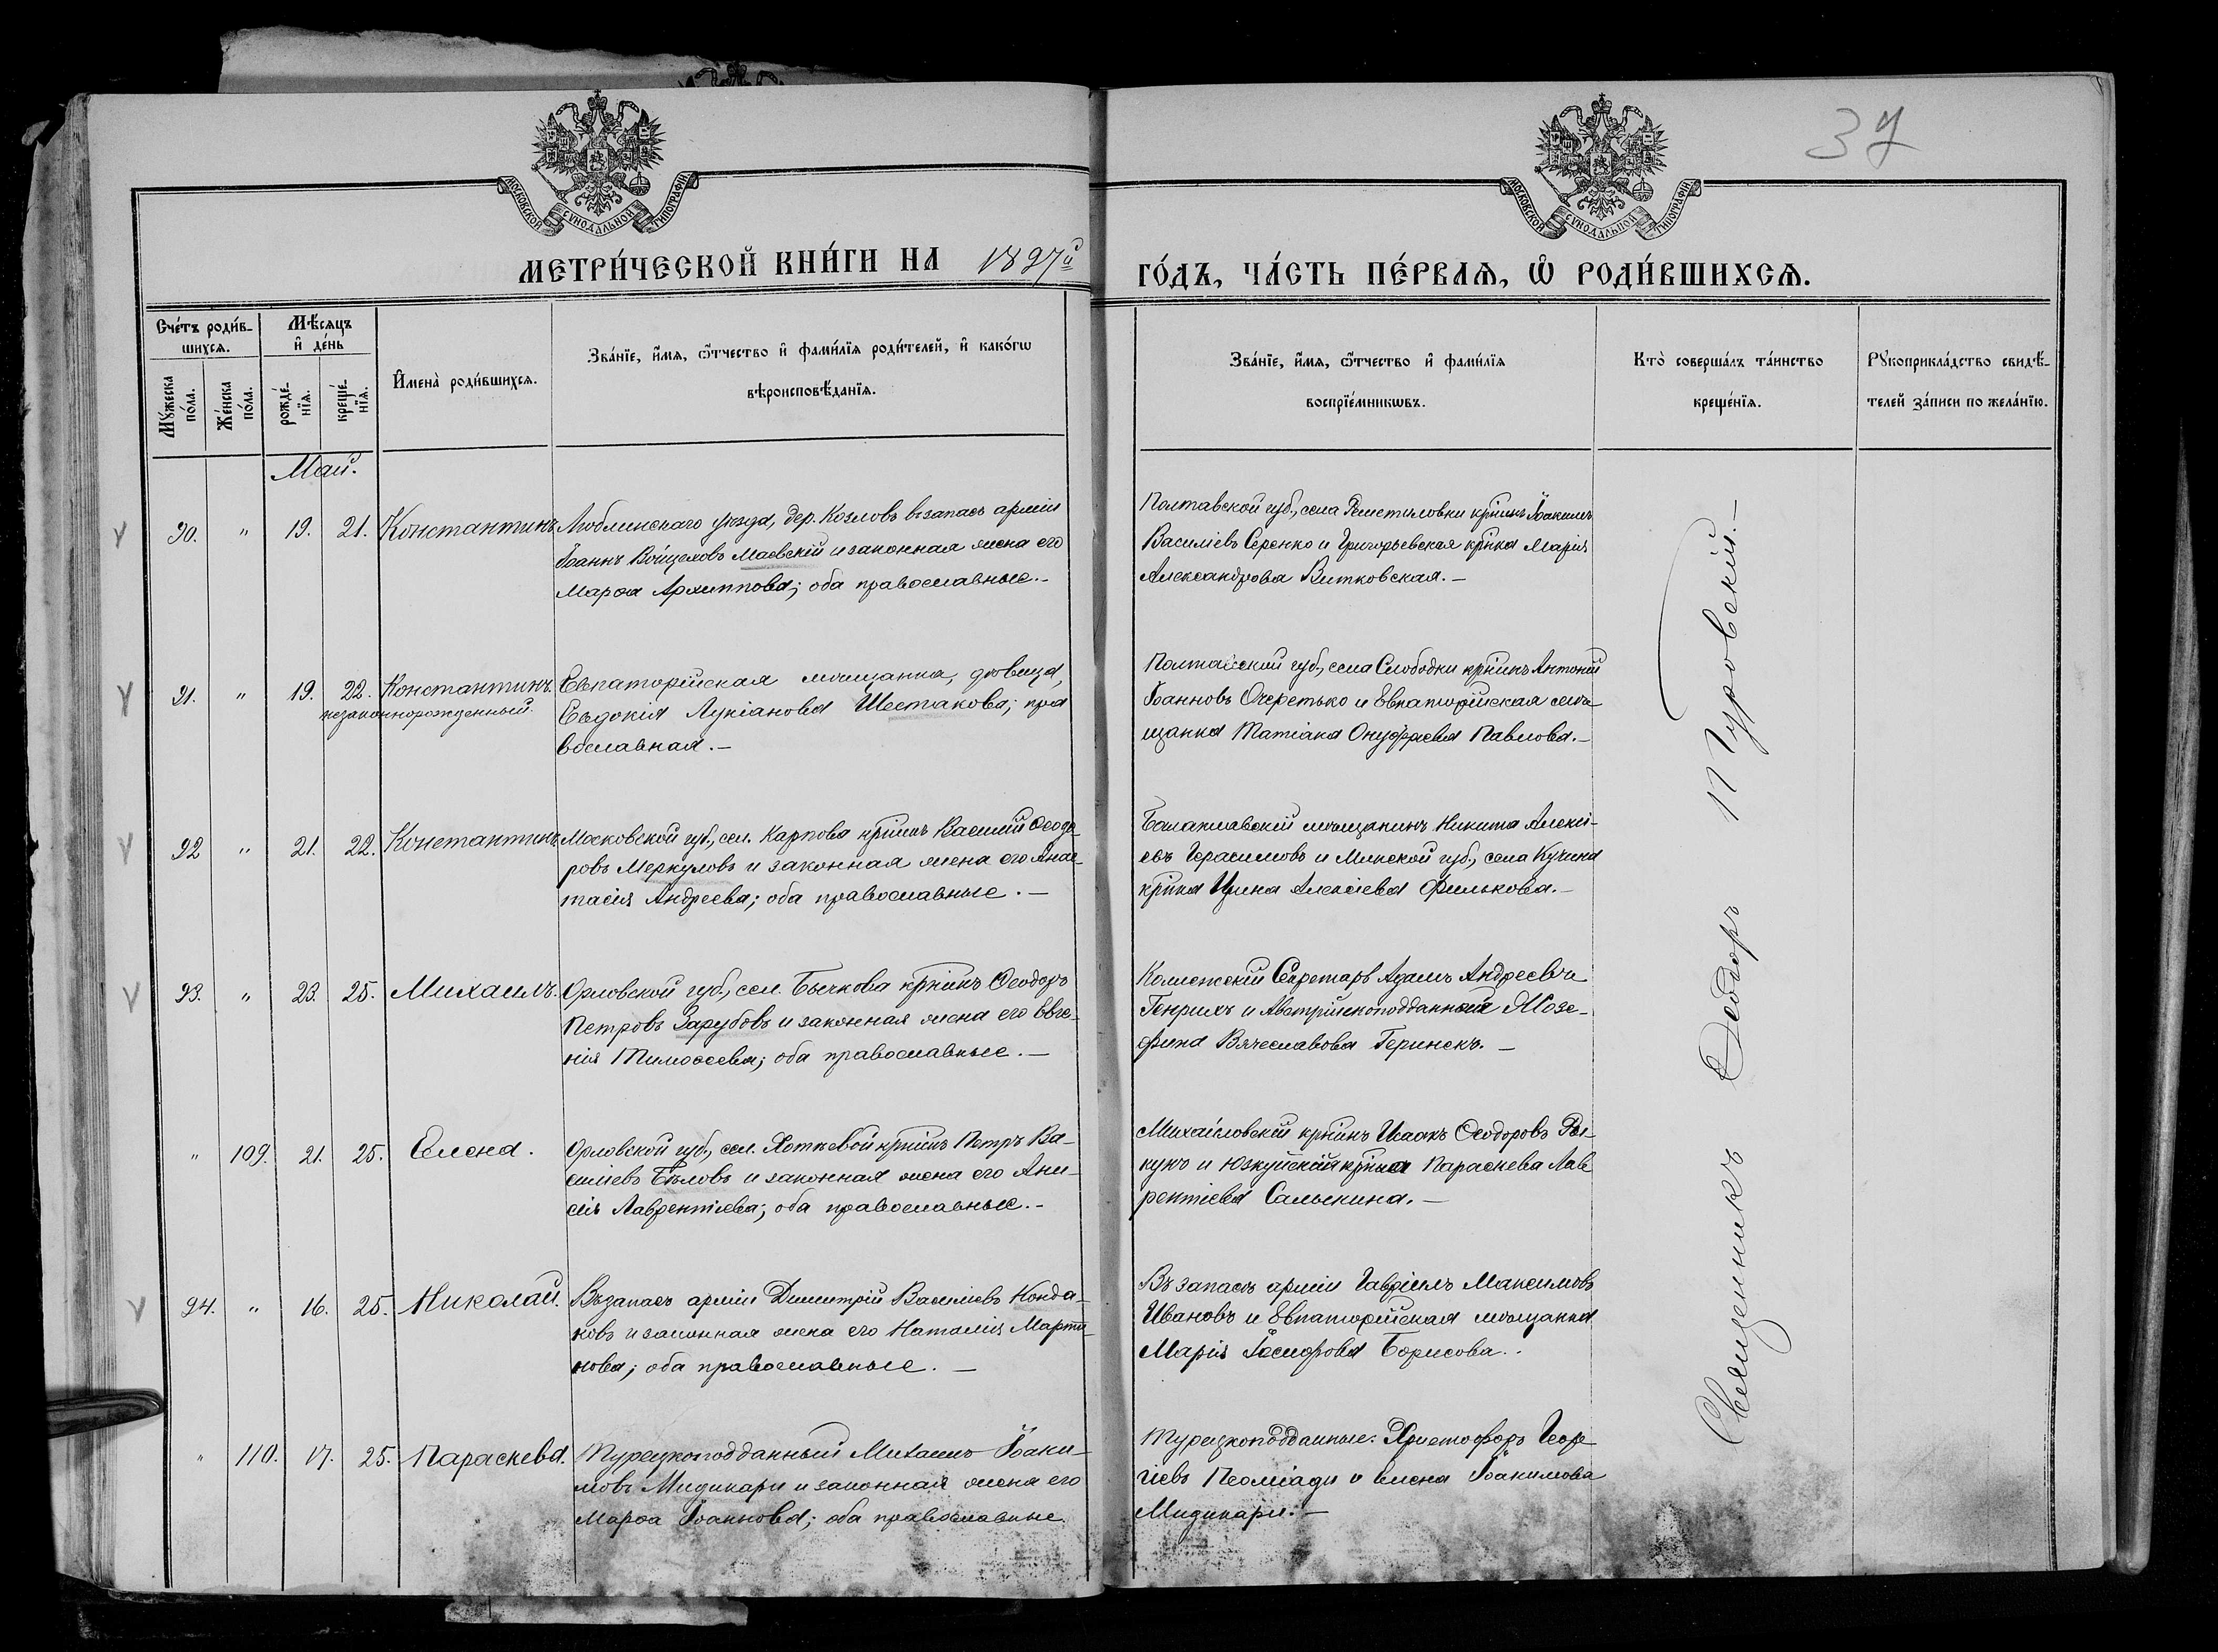 37
МОСКОВСКОЙ СѴНОДАЛЬНОЙ ТИПОГРАФІИ
МОСКОВСКОЙ СѴНОДАЛЬНОЙ ТИПОГРАФІИ
МЕТРИ́ЧЕСКОЙ КНИ́ГИ НА 1897й ГО́ДЪ, ЧА́СТЬ ПЕ́РВАѦ, Ѡ҆ РОДИ́ВШИХСѦ.
Сче́тъ роди́в-
шихсѧ.
Мѣ́сѧцъ
и҆ де́нь
Мꙋ́жеска
по́ла.
Же́нска
по́ла.
рожде́-
нїѧ.
креще́-
нїѧ.
И҆мена̀ роди́вшихсѧ.
Зва́нїе, и҆́мѧ, ѻ҆́тчество и҆ фами́лїѧ роди́телей, и҆ како́гѡ
вѣроисповѣ́данїѧ.
Зва́нїе, и҆́мѧ, ѻ҆́тчество и҆ фами́лїѧ
воспрїе́мникѡвъ.
Кто̀ соверша́лъ та́инство
креще́нїѧ.
Рꙋкоприкла́дство свидѣ́-
телей за́писи по жела́нїю.
Май.
90. " 19. 21. Константинъ.
Люблинскаго уѣзда, дер. Козловъ въ запасѣ арміи
Іоаннъ Войцеховъ Маевскій и законная жена его
Марѳа Архиппова; оба православные.-
Полтавской губ., села Решетиловки кр̃нинъ Іоакимъ
Василіевъ Серенко и Григорьевская кр̃нка Марія
Александрова Витковская.-
91. " 19. 22. Константинъ.
незаконнорожденный.
Евпаторійская мѣщанка, дѣвица,
Евдокія Лукіанова Шестакова; пра
вославная.-
Полтавской губ., села Слободки кр̃нинъ Антоній
Іоанновъ Очеретько и Евпаторійская мѣ-
щанка Татіана Онуфріева Павлова.-
92 " 21. 22. Константинъ
Московской губ., сел. Карпова кр̃нинъ Василій Ѳеодо-
ровъ Меркуловъ и законная жена его Анас-
тасія Андреева; оба православные.-
Балаклавскій мѣщанинъ Никита Алексі-
евъ Герасимовъ и Минской губ., села Кучина
кр̃нка Ирина Алексіева Филькова.-
93. " 23. 25. Михаилъ.
Орловской губ., сел. Бычкова кр̃нинъ Ѳеодоръ
Петровъ Зарубовъ и законная жена его Евге-
нія Тимоѳеева; оба православные.-
Секретарь Адамъ Андреевъ
Генрихъ и Австрійскоподданная Жозе-
фина Вячеславова Геринекъ.-
" 109. 21. 25. Елена.
Орловской губ., сел. Хотьевой кр̃нинъ Петръ Ва-
силіевъ Бѣловъ и законная жена его Ани-
сія Лаврентіева; оба православные.-
Михайловскій кр̃нинъ Исаакъ Ѳеодоровъ
и кр̃нка Параскева Лав
рентіева Салыкина.-
94. " 16. 25. Николай.
Въ запасѣ арміи Димитрій Василіевъ Конда-
ковъ и законная жена его Наталія Марти-
нова; оба православные.-
Въ запасѣ арміи Гавріилъ Максимовъ
Ивановъ и Евпаторійская мѣщанка
Марія Іосифова Борисова.
" 110. 17. 25. Параскева.
Турецкоподданный Михаилъ Іоаки-
мовъ Мидикари и законная жена его
Марѳа Іоаннова; оба православные
Турецкоподданные: Христофоръ Геор-
гіевъ и Елена Іоакимова
Мидикари.-
Священникъ Ѳеодоръ Туровскій.-